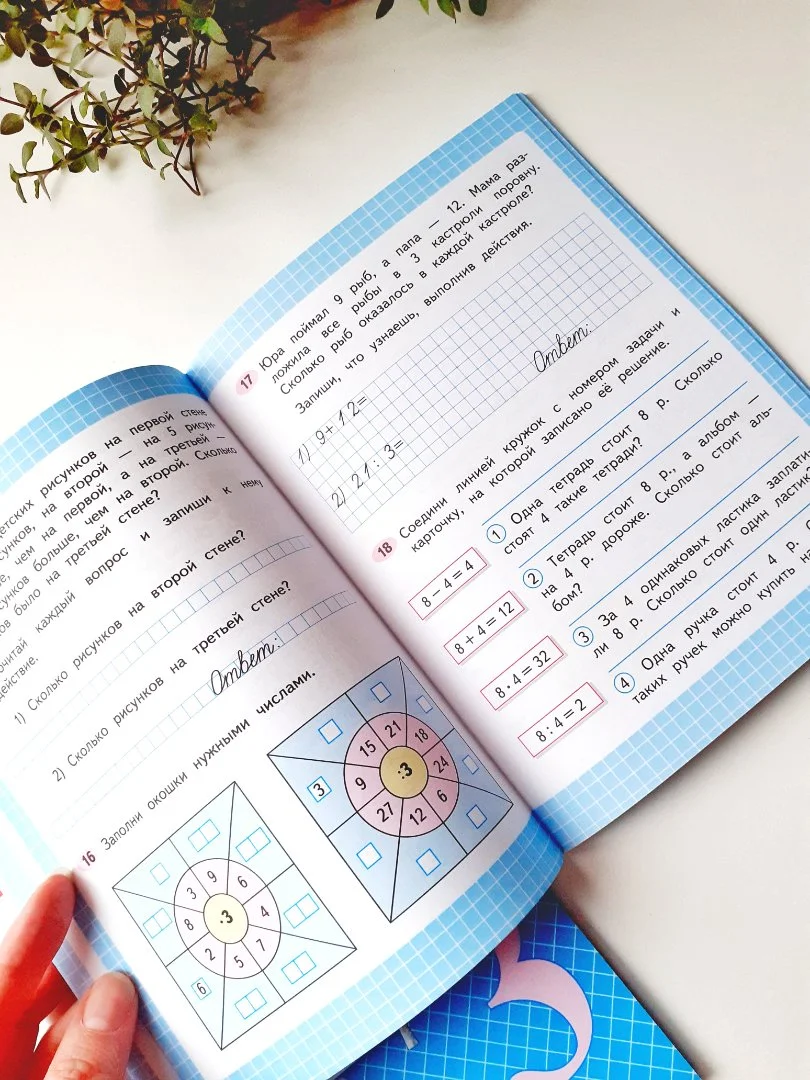 етских рисунков на первой стене
сунков, на второй — на 5 рисун-
чем на первой, а на третьей —
сунков больше, чем на второй. Сколько
было на третьей стене?
каждый вопрос и запиши к нему
действие.
1) Сколько рисунков на второй стене?
2) Сколько рисунков на третьей стене?
Ответ:
16 Заполни окошки нужными числами.
3 9 6
8 · 3 4
2 5 7
6
15 21 18
3 9 :3 24
27 12 6
17 Юра поймал 9 рыб, а папа — 12. Мама раз-
ложила все рыбы в 3 кастрюли поровну.
Сколько рыб оказалось в каждой кастрюле?
Запиши, что узнаешь, выполнив действия.
1) 9+12=
2) 21:3=
Ответ:
18 Соедини линией кружок с номером задачи и
карточку, на которой записано её решение.
8 – 4 = 4
8 + 4 = 12
8 · 4 = 32
8 : 4 = 2
1 Одна тетрадь стоит 8 р. Сколько
стоят 4 такие тетради?
2 Тетрадь стоит 8 р., а альбом —
на 4 р. дороже. Сколько стоит аль-
бом?
3 За 4 одинаковых ластика заплати-
ли 8 р. Сколько стоит один ластик
4 Одна ручка стоит 4 р.
таких ручек можно купить на
3